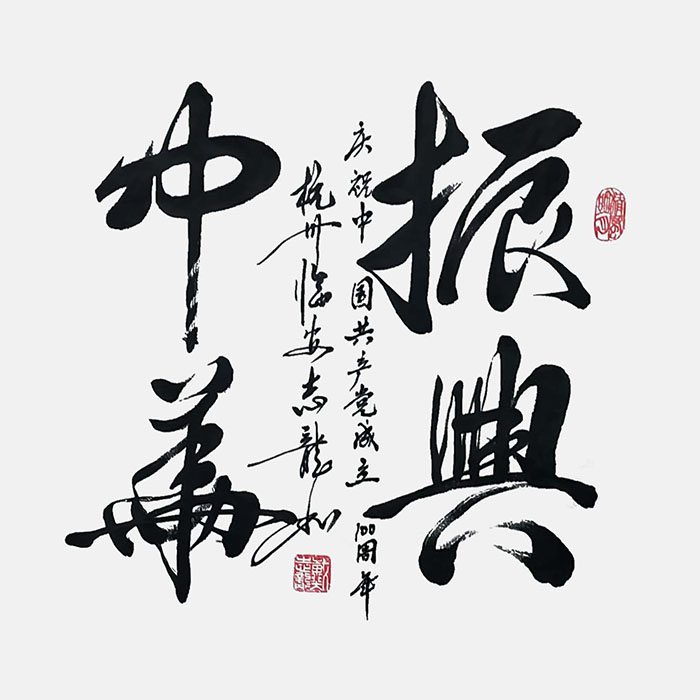 振興
中華
庆祝中国共产党成立100周年
杭州临安志龍书